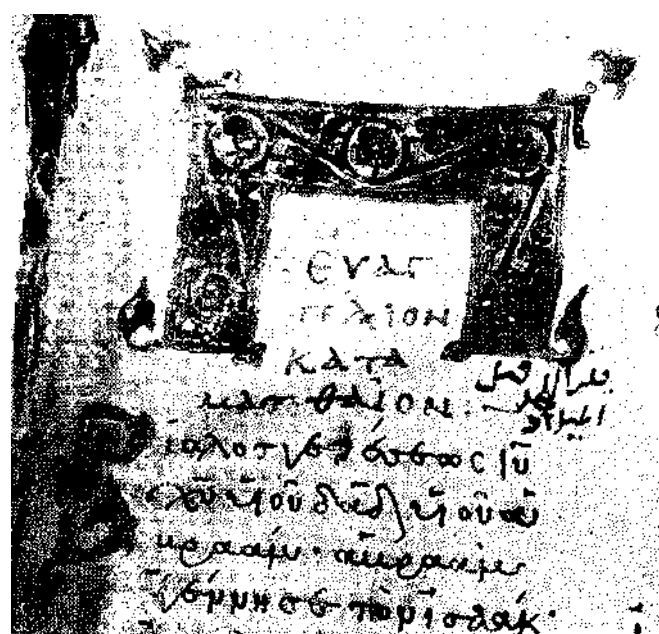 ΕΥΑΓ
ΓΕΛΙΟΝ
ΚΑΤΑ
ΜΑΤΘΑΙΟΝ
ίβλος γενέσεως ἰῦ
χῦ υἱοῦ δαδ υἱοῦ ἀ
βραάμ· ἀβραὰμ
ἐγέννησε τὸν ἰσαάκ·
قبل
الميلاد